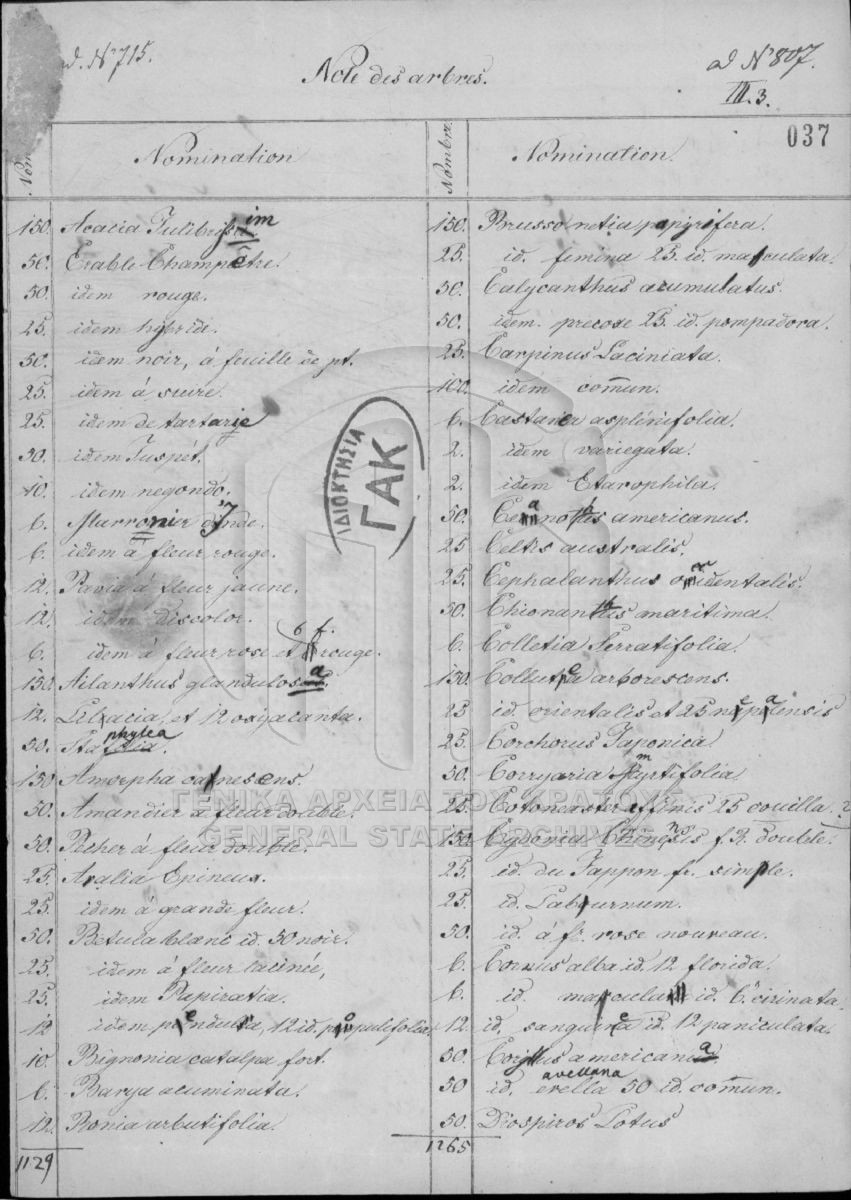 ad. No 715.
Note des arbres.
ad No 807.
III. 3.
037
Nom
Nomination
150. Acacia Julibrissim
50. Erable Champêtre.
50. idem rouge.
25. idem hybrid.
50. idem noir, á feuille de pt.
25. idem á sucre.
25. idem de tartarie
50. idem Juspét.
10. idem negondo.
6. Marronier d'Inde.
6. idem á fleur rouge.
12. Pavia á fleur jaune.
12. idem discolor.
6. idem á fleur rose et 6 f. rouge.
150. Ailanthus glandulosa
12. et 12 oxyacanta.
50. Staphylea.
150 Amorpha canescens.
50. Amandier á fleur double.
50. Pecher á fleur double.
25. Aralia Epineux.
25. idem á grande fleur.
50. Betula blanc id. 50 noir.
25. idem á fleur lacinée,
25. idem Papiratia.
12 idem pendula, 12 id. populifolia.
10. Bignonia catalpa fort.
6. Barya acuminata.
12. Ronia arbutifolia.
1129
Nombre.
Nomination.
150. Brussonetia papyrifera.
25. id. femina 25. id. masculata.
50. Calycanthus acumulatus.
50. idem. precose 25. id. pompadora.
25. Carpinus Laciniata.
100. idem comun.
6. Castanea asplénifolia.
2. idem variegata.
2. idem Etarophila.
50. Ceanothus americanus.
25 Celtis australis.
25. Cephalanthus occidentalis.
50. Chionanthus maritima.
6. Colletia Serratifolia.
150. Collutea arborescens.
25 id. orientalis et 25 nepalensis
25. Corchorus Japonica
50. Corryaria myrtifolia
25. Cotoneaster affinis 25 couilla. ?
150. Cydonia Chinensis f. R. double.
25. id. du Jappon fr. simple.
25. id. Laburnum.
50. id. á fr. rose nouveau.
6. Cornus alba id. 12 florida.
6. id. mascula id. 6. cirinata.
12. id. sanguinea id. 12 paniculata.
50. Corylus americana
50 id. avellana evella 50 id. comun.
50. Diospiros Lotus
1265
ΙΔΙΟΚΤΗΣΙΑ
ΓΑΚ
ΓΕΝΙΚΑ ΑΡΧΕΙΑ ΤΟΥ ΚΡΑΤΟΥΣ
GENERAL STATE ARCHIVES